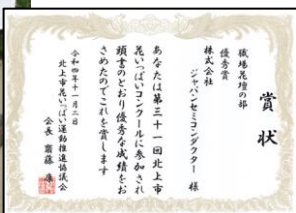 賞状
職場花壇の部
優秀賞
株式会社
ジャパンセミコンダクター 様
あなたは第三十一回北上市
花いっぱいコンクールに参加され
頭書のとおり優秀な成績をお
さめたのでこれを賞します
令和四年十一月二日
北上市花いっぱい運動推進協議会
会長 齋藤